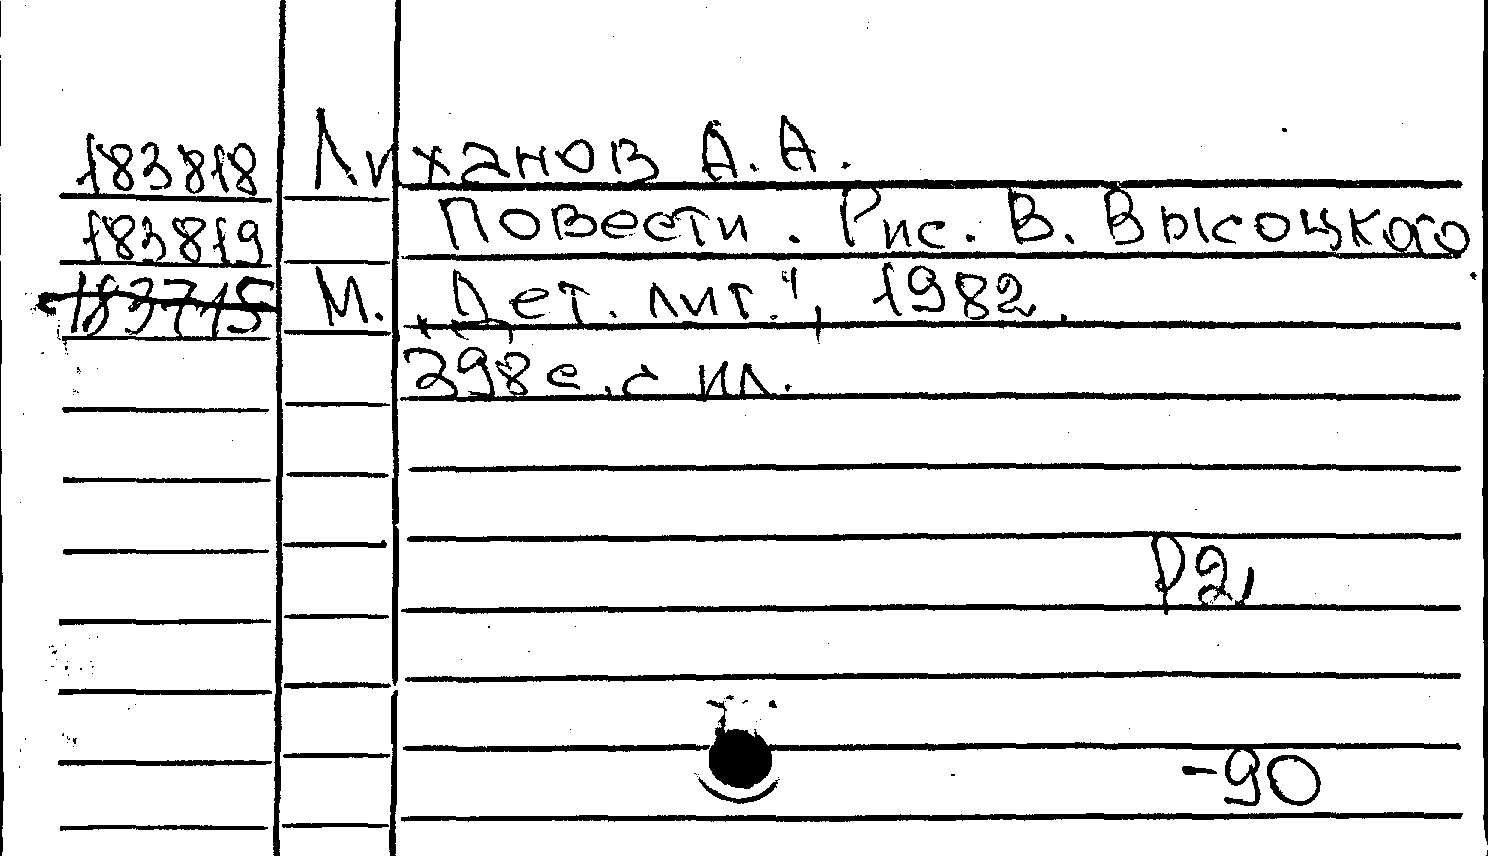 183818 Лиханов А. А.
183819 Повести. Рис. В. Высоцкого
183715 М. „Дет. лит.", 1982.
398 с. с ил.
Р2
-90